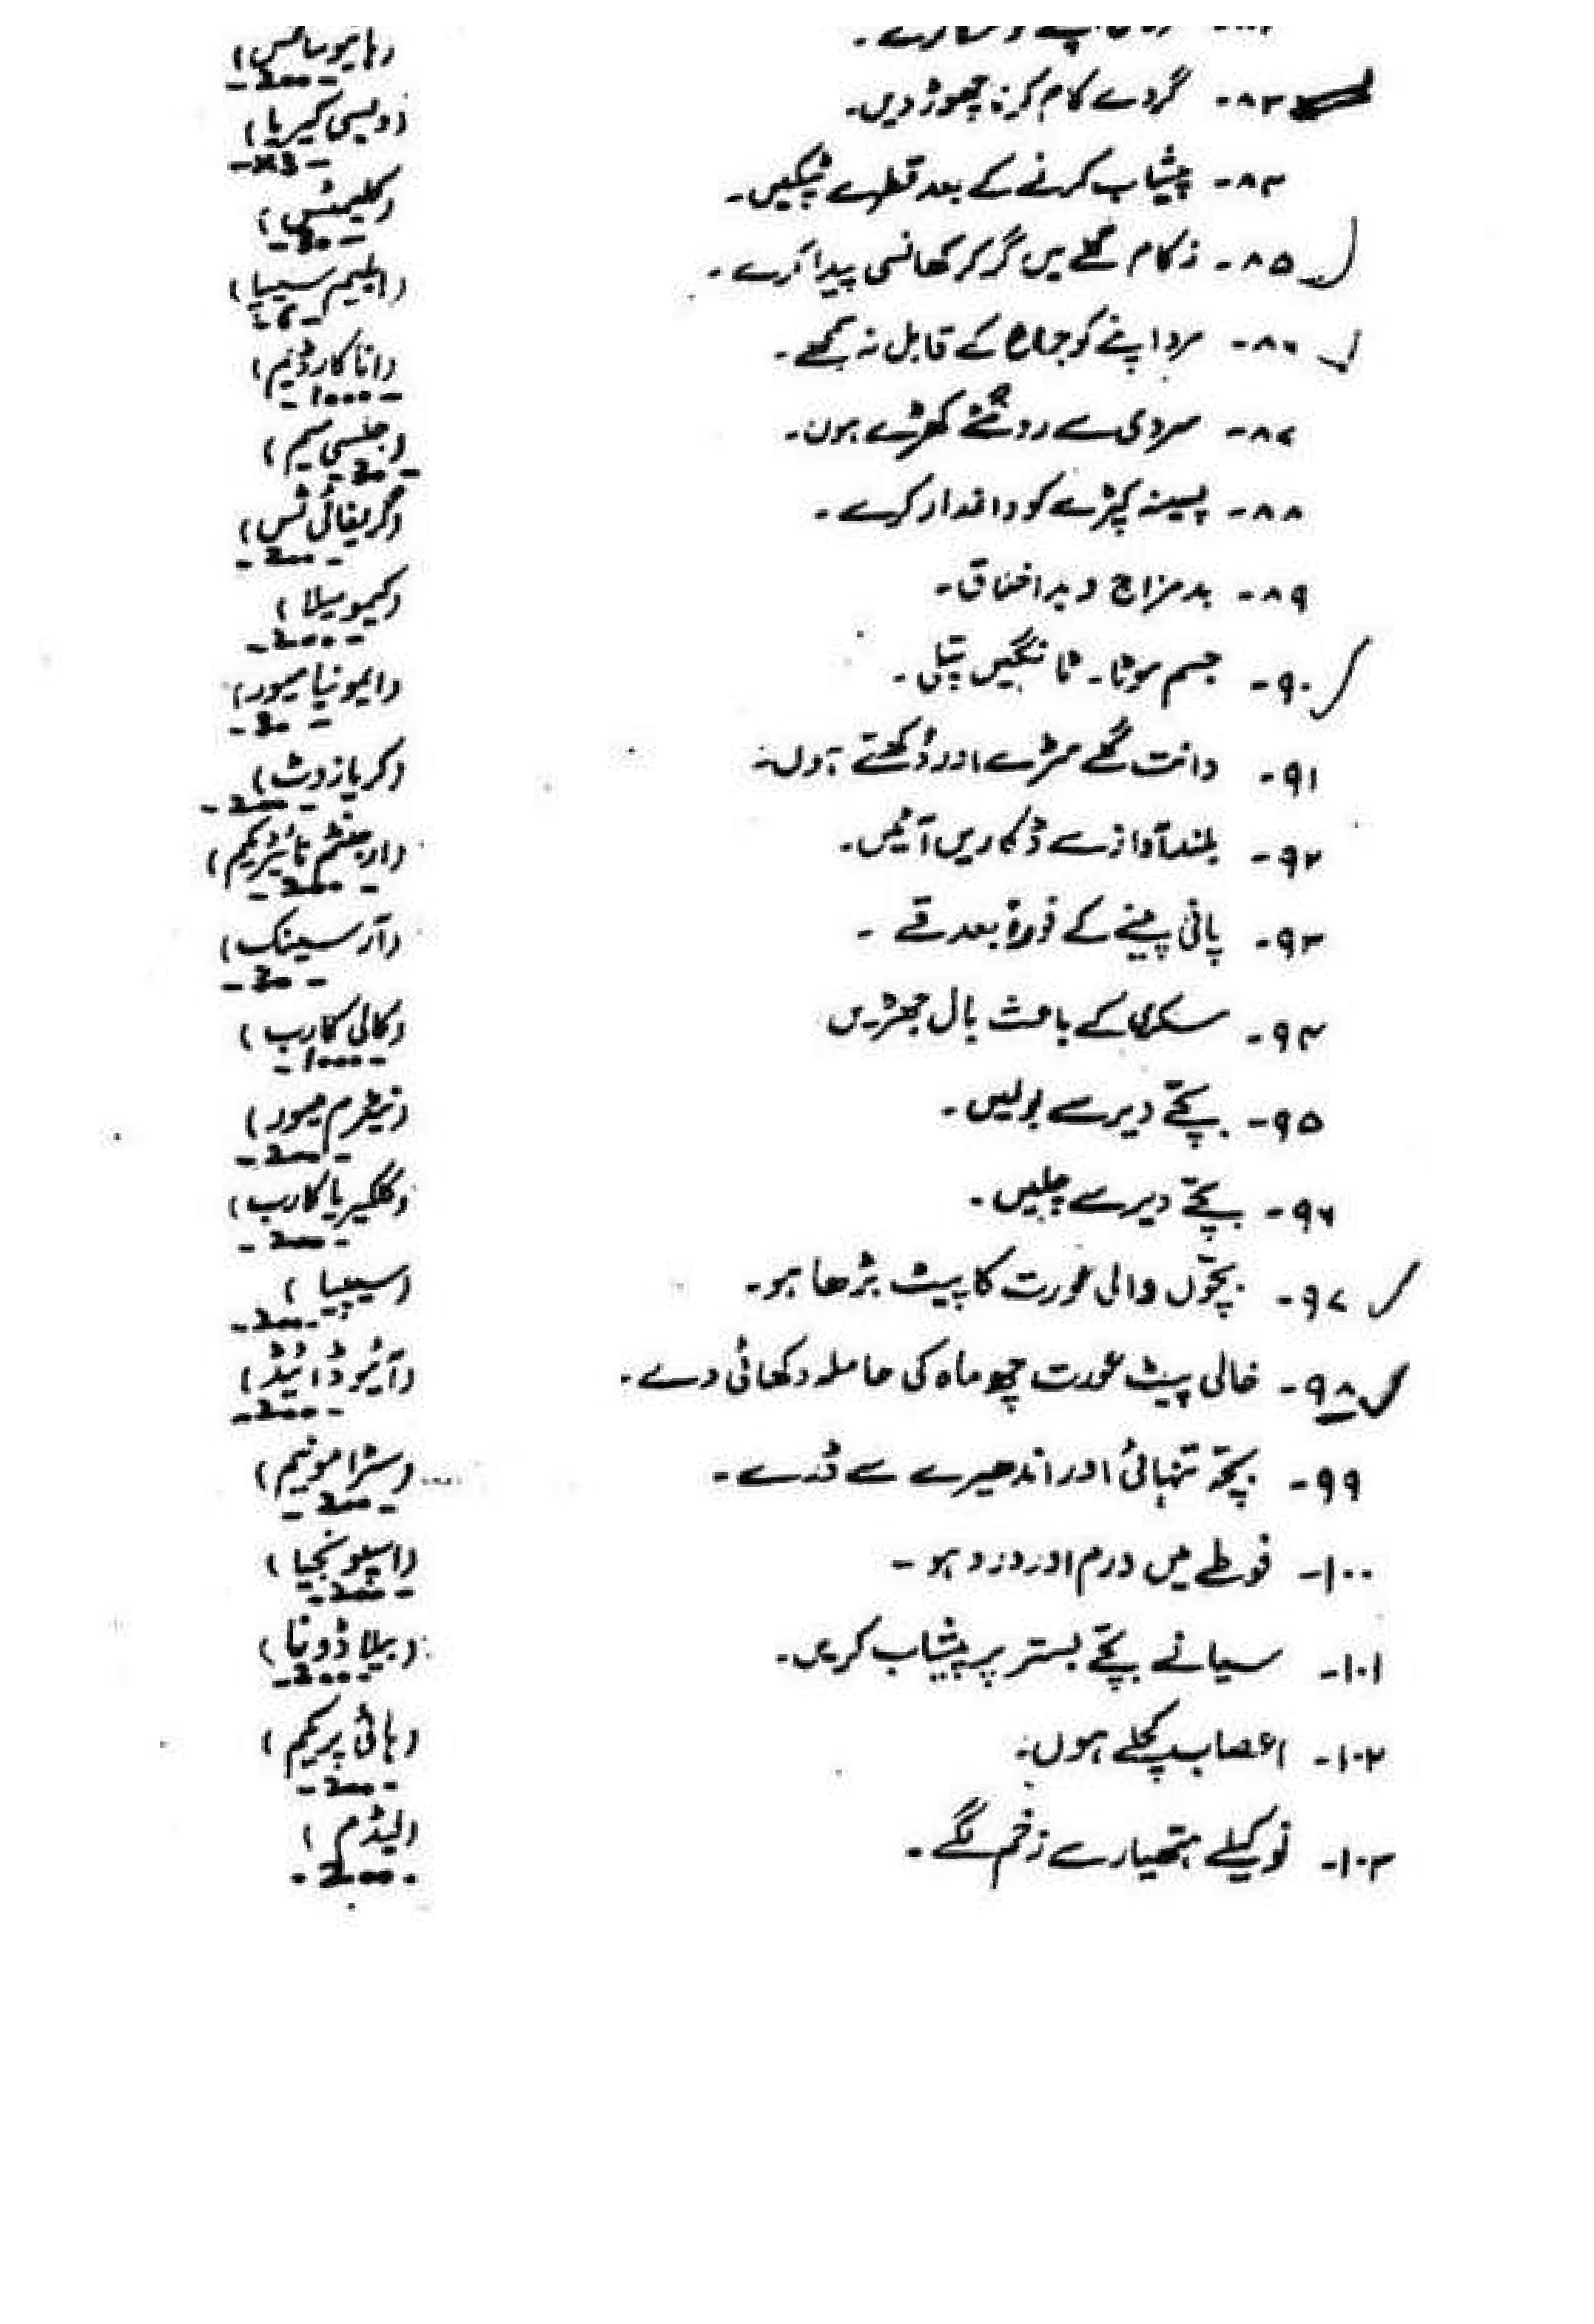 (ہایوسائمس)
-200-
۸۳- گردے کام کرنا چھوڑ دیں۔ (ویسی کیریا)
-x3-
۸۴- پیشاب کرنے کے بعد قطرے ٹپکیں۔ (کلیمٹس)
-30-
۸۵- زکام گلے میں گر کر کھانسی پیدا کرے۔ (ایلیم سیپا)
-6-
۸۶- مرد اپنے کو جماع کے قابل نہ سمجھے۔ (اناکارڈیم)
-1000-
۸۷- سردی سے رونگٹے کھڑے ہوں۔ (جلسی میم)
-30-
۸۸- پسینہ کپڑے کو داغدار کرے۔ (گریفائی ٹس)
-200-
۸۹- بدمزاج و بداخلاق۔ (کیمومیلا)
-200-
۹۰- جسم موٹا۔ ٹانگیں پتلی۔ (ایمونیا میور)
-30-
۹۱- دانت گلے سڑے اور دُکھتے ہوں۔ (کریازوٹ)
-200-
۹۲- بلند آواز سے ڈکاریں آئیں۔ (ارجنٹم نائٹریکم)
-200-
۹۳- پانی پینے کے فوراً بعد قے۔ (آرسینک)
-30-
۹۴- سکری کے باعث بال جھڑیں (کالی کارب)
-1000-
۹۵- بچّے دیر سے بولیں۔ (نیٹرم میور)
-200-
۹۶- بچّے دیر سے چلیں۔ (کلکیریا کارب)
-200-
۹۷- بچّوں والی عورت کا پیٹ بڑھا ہو۔ (سیپیا)
-200-
۹۸- خالی پیٹ عورت چھ ماہ کی حاملہ دکھائی دے۔ (آئیوڈائیڈ)
-200-
۹۹- بچّہ تنہائی اور اندھیرے سے ڈرے۔ (سٹرامونیم)
-200-
۱۰۰- فوطے میں ورم اور درد ہو۔ (اسپونجیا)
-200-
۱۰۱- سیانے بچّے بستر پر پیشاب کریں۔ (بیلاڈونا)
-200-
۱۰۲- اعصاب کچلے ہوں۔ (ہائی پریکم)
-200-
۱۰۳- نوکیلے ہتھیار سے زخم لگے۔ (لیڈم)
-200-